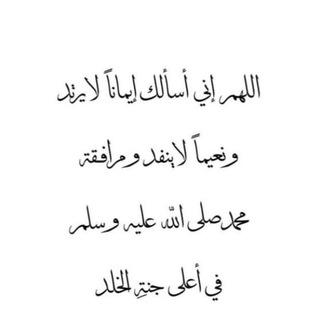 اللهم إني أسألك إيماناً لا يرتد
ونعيماً لا ينفد ومرافقة
محمد صلى الله عليه وسلم
في أعلى جنةِ الخلد